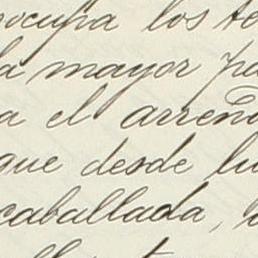 ocupa los te
la mayor pa
a el arreña
que desde lu
caballada,